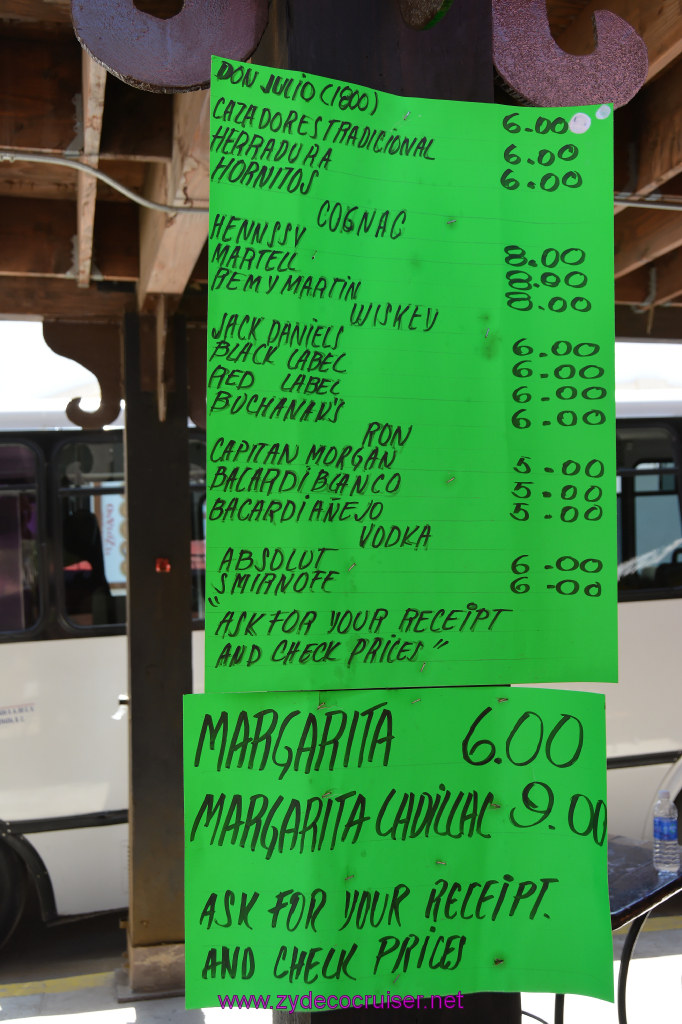 DON JULIO (1800)
CAZADORES TRADICIONAL 6.00
HERRADURA 6.00
HORNITOS 6.00
COGNAC
HENNSSY 8.00
MARTELL 8.00
REMY MARTIN 8.00
WISKEY
JACK DANIELS 6.00
BLACK LABEL 6.00
RED LABEL 6.00
BUCHANAN'S 6.00
RON
CAPITAN MORGAN 5.00
BACARDI BLANCO 5.00
BACARDI AÑEJO 5.00
VODKA
ABSOLUT 6.00
SMIRNOFF 6.00
"ASK FOR YOUR RECEIPT
AND CHECK PRICES"
MARGARITA 6.00
MARGARITA CADILLAC 9.00
ASK FOR YOUR RECEIPT.
AND CHECK PRICES
www.zydecocruiser.net